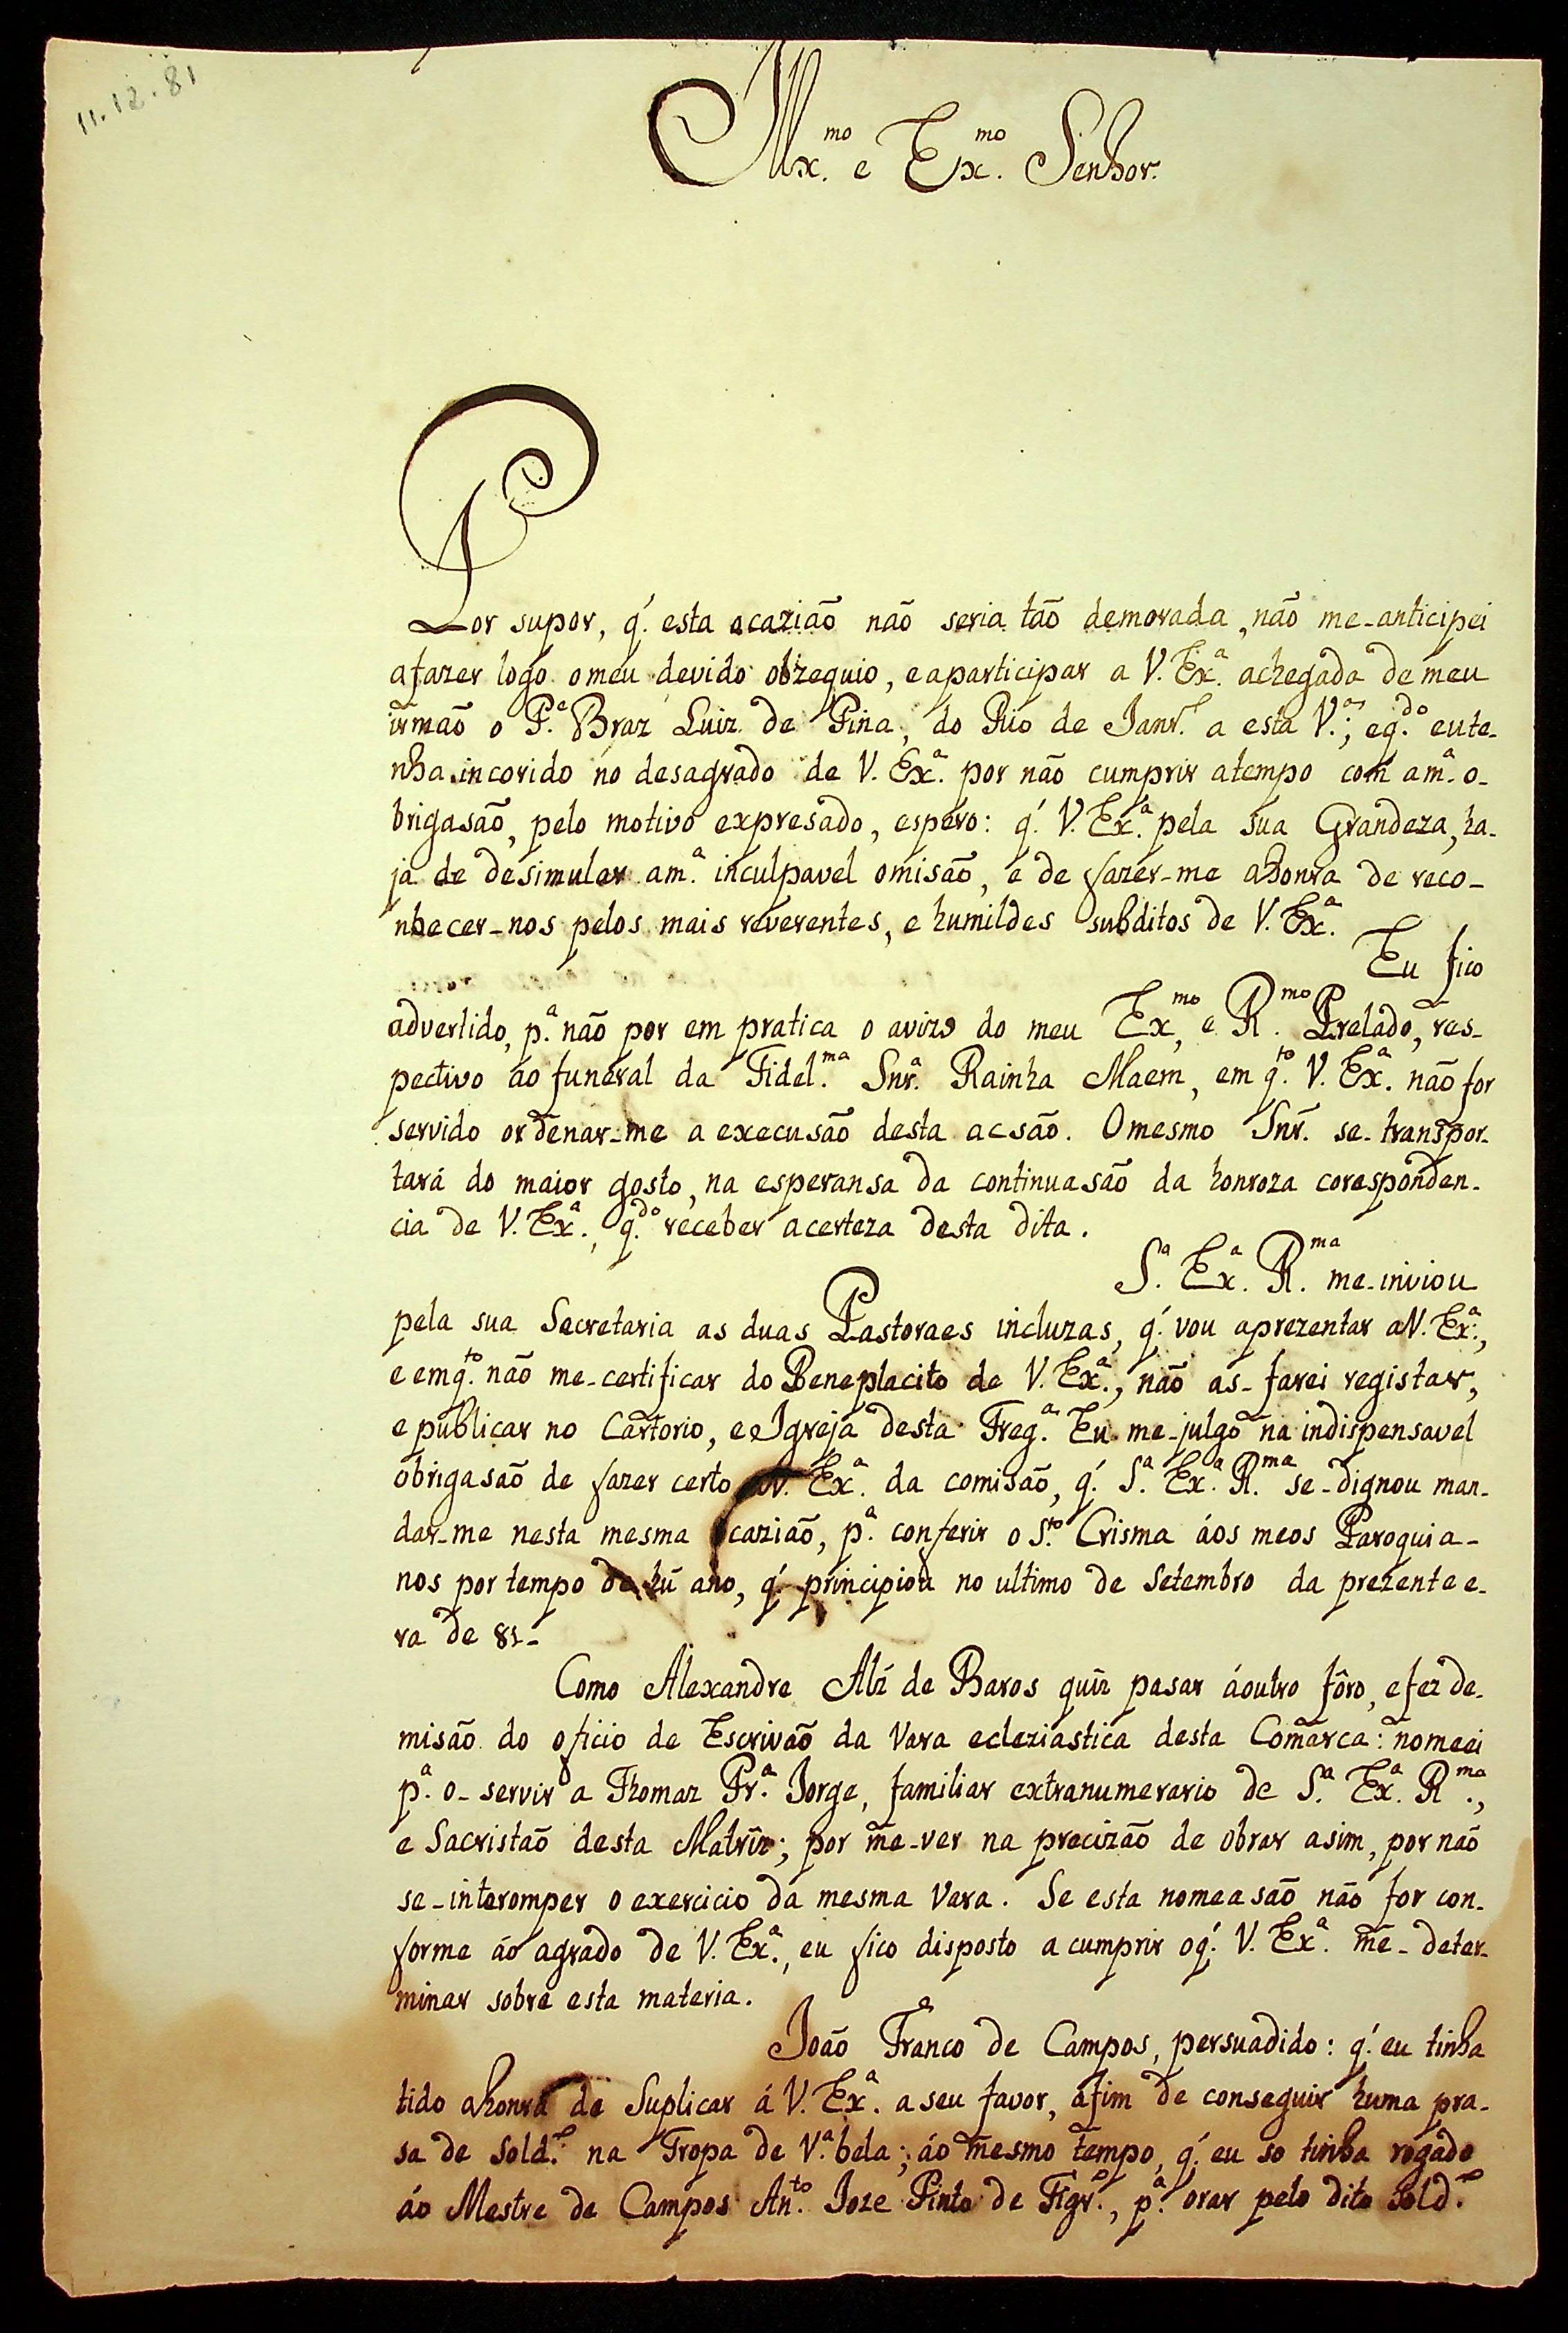 11.12.81
Illx.mo e Ex.mo Senhor.
Por supor, q́. esta ocazião não seria tão demorada, não me-anticipei
afazer logo omeu devido obzequio, eaparticipar a V. Ex.a achegada de meu
irmão o P.e Braz Luiz de Pina, do Rio de Janr.o a esta V.a; eq.do eute-
nha incorido no desagrado de V. Ex.a por não cumprir atempo com am.a o-
brigasão, pelo motivo expresado, espero: q́. V. Ex.a pela sua Grandeza, ha-
ja de desimular am.a inculpavel omisão, e de fazer-me ahonra de reco-
nhecer-nos pelos mais reverentes, e humildes subditos de V. Ex.a
Eu fico
advertido, p.a não por em pratica o avizo do meu Ex.mo, e R.mo Prelado, res-
pectivo ao funeral da Fidel.ma Snr.a Rainha Maem, em q.to V. Ex.a não for
servido ordenar-me a execusão desta acsão. Omesmo Snr. se-transpor-
tará do maior gosto, na esperansa da continuasão da honroza coresponden-
cia de V. Ex.a, q.do receber acerteza desta dita.
S.a Ex.a R.ma me-inviou
pela sua Secretaria as duas Pastoraes incluzas, q́. vou aprezentar aV. Ex.a,
e emq.to não me-certificar do Beneplacito de V. Ex.a, não as-farei registar,
epublicar no Cartorio, eeIgreja desta Freg.a Eu me-julgo na indispensavel
obrigasão de fazer certo aV. Ex.a da comisão, q́. S.a Ex.a R.ma se-dignou man-
dar-me nesta mesma Ocazião, p.a conferir o S.to Crisma áos meos Paroquia-
nos por tempo de hũ ano, q́. principiou no ultimo de Setembro da prezente e-
ra de 81-
Como Alexandre Alz̃ de Baros quiz pasar áoutro fôro, efez de-
misão do oficio de Escrivão da Vara ecleziastica desta Comarca: nomeei
p.a o-servir a Thomaz Fr.a Jorge, familiar extranumerario de S.a Ex.a R.ma,
e Sacristão desta Matriz; por me-ver na precizão de obrar asim, por não
se-interomper o exercicio da mesma Vara. Se esta nomeasão não for con-
forme áo agrado de V. Ex.a, eu fico disposto a cumprir oq́. V. Ex.a me-deter-
minar sobre esta materia.
João Franco de Campos, persuadido: q́. eu tinha
tido ahonra de Suplicar á V. Ex.a a seu favor, afim de conseguir huma pra-
sa de Sold.o na Tropa de V.a bela; áo mesmo tempo, q́. eu so tinha rogado
áo Mestre de Campos An.to Joze Pinto de Figr.o, p.a orar pelo dito Sold.o